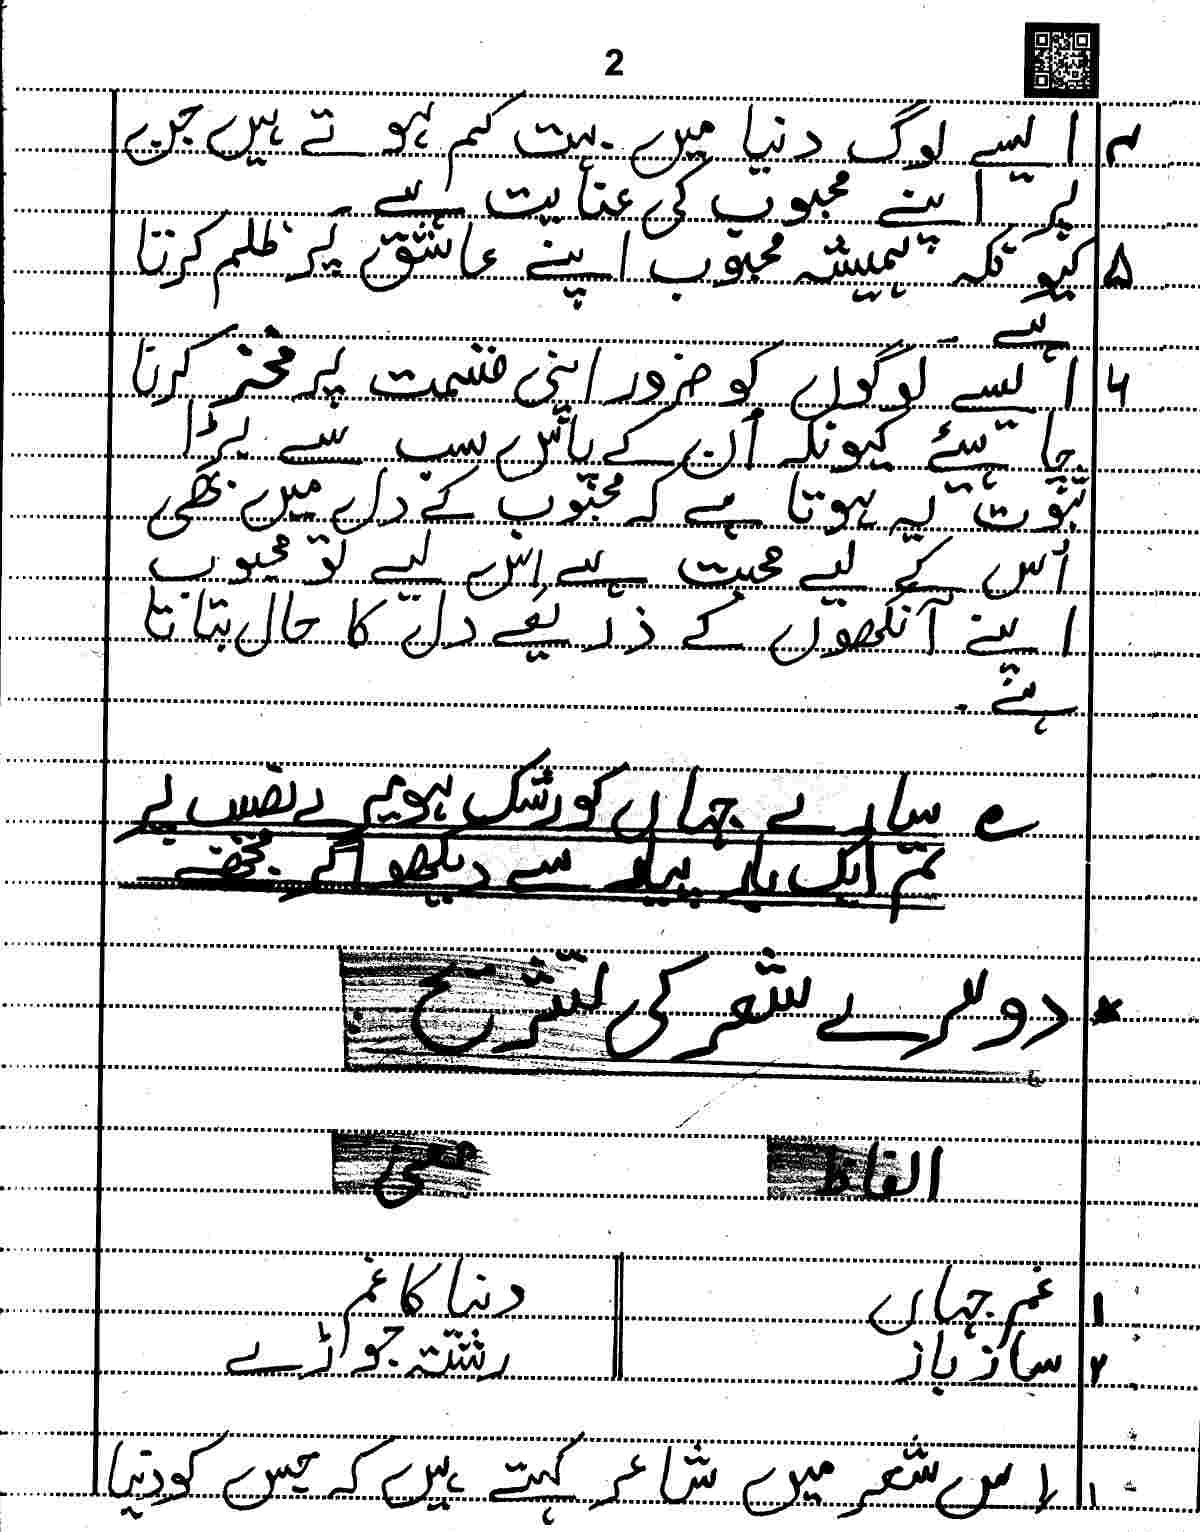 2
۴ ایسے لوگ دنیا میں بہت کم ہوتے ہیں جن
پر اپنے محبوب کی عنایت ہے ۔
۵ کیونکہ ہمیشہ محبوب اپنے عاشق پر ظلم کرتا
ہے ۔
۶ ایسے لوگوں کو ضرور اپنی قسمت پر فخر کرنا
چاہئے کیونکہ اُن کے پاس سب سے بڑا
ثبوت یہ ہوتا ہے کہ محبوب کے دل میں بھی
اُس کے لیے محبت ہے اس لیے تو محبوب
اپنے آنکھوں کے ذریعے دل کا حال بتاتا
ہے ۔
؎ سارے جہاں کو رشک ہو میرے نصیب پر
تم ایک بار پیار سے دیکھو اگر مجھے
* دوسرے شعر کی تشریح :
الفاظ معنی
۱ غم جہاں دنیا کا غم
۲ ساز باز رشتہ جوڑے
۱ اس شعر میں شاعر کہتے ہیں کہ جس کو دنیا